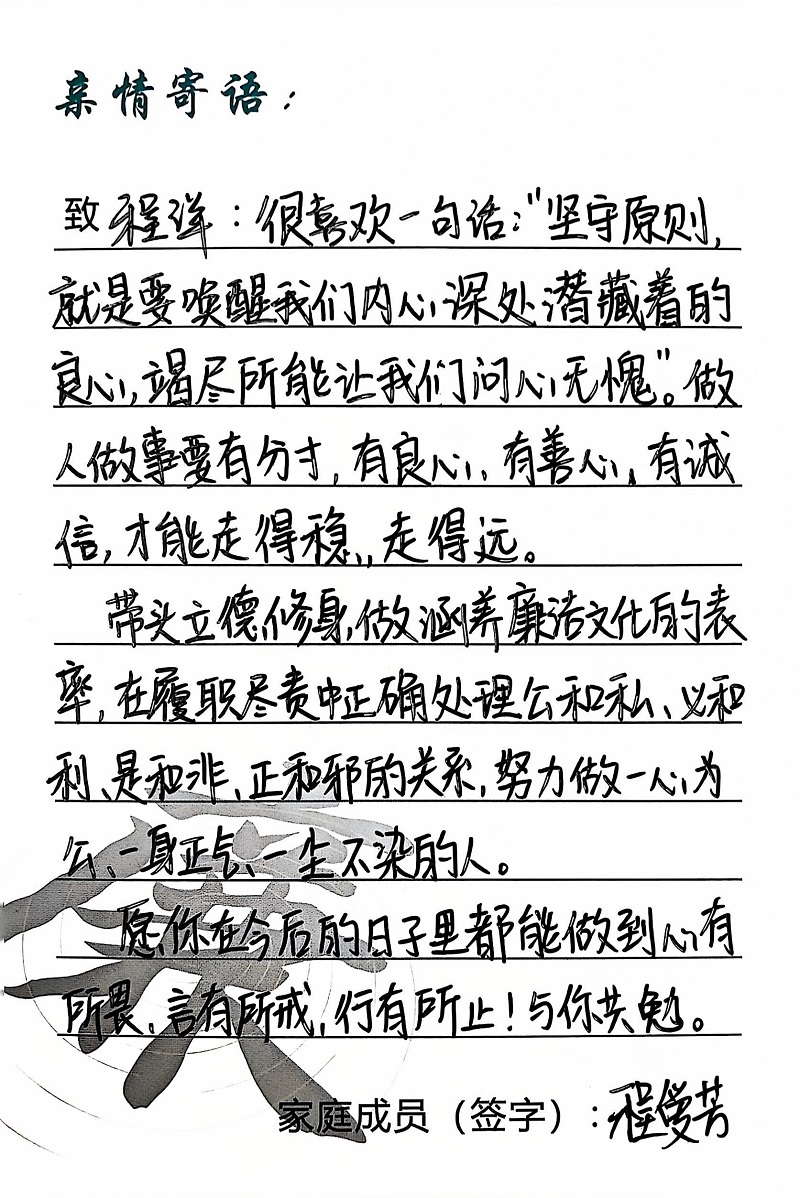 亲情寄语：
致程洋：很喜欢一句话："坚守原则，
就是要唤醒我们内心深处潜藏着的
良心，竭尽所能让我们问心无愧"。做
人做事要有分寸，有良心，有善心，有诚
信，才能走得稳，走得远。
带头立德修身，做涵养廉洁文化的表
率，在履职尽责中正确处理公和私、义和
利、是和非、正和邪的关系，努力做一心为
公、一身正气、一尘不染的人。
愿你在今后的日子里都能做到心有
所畏，言有所戒，行有所止！与你共勉。
家庭成员（签字）：程曼芳